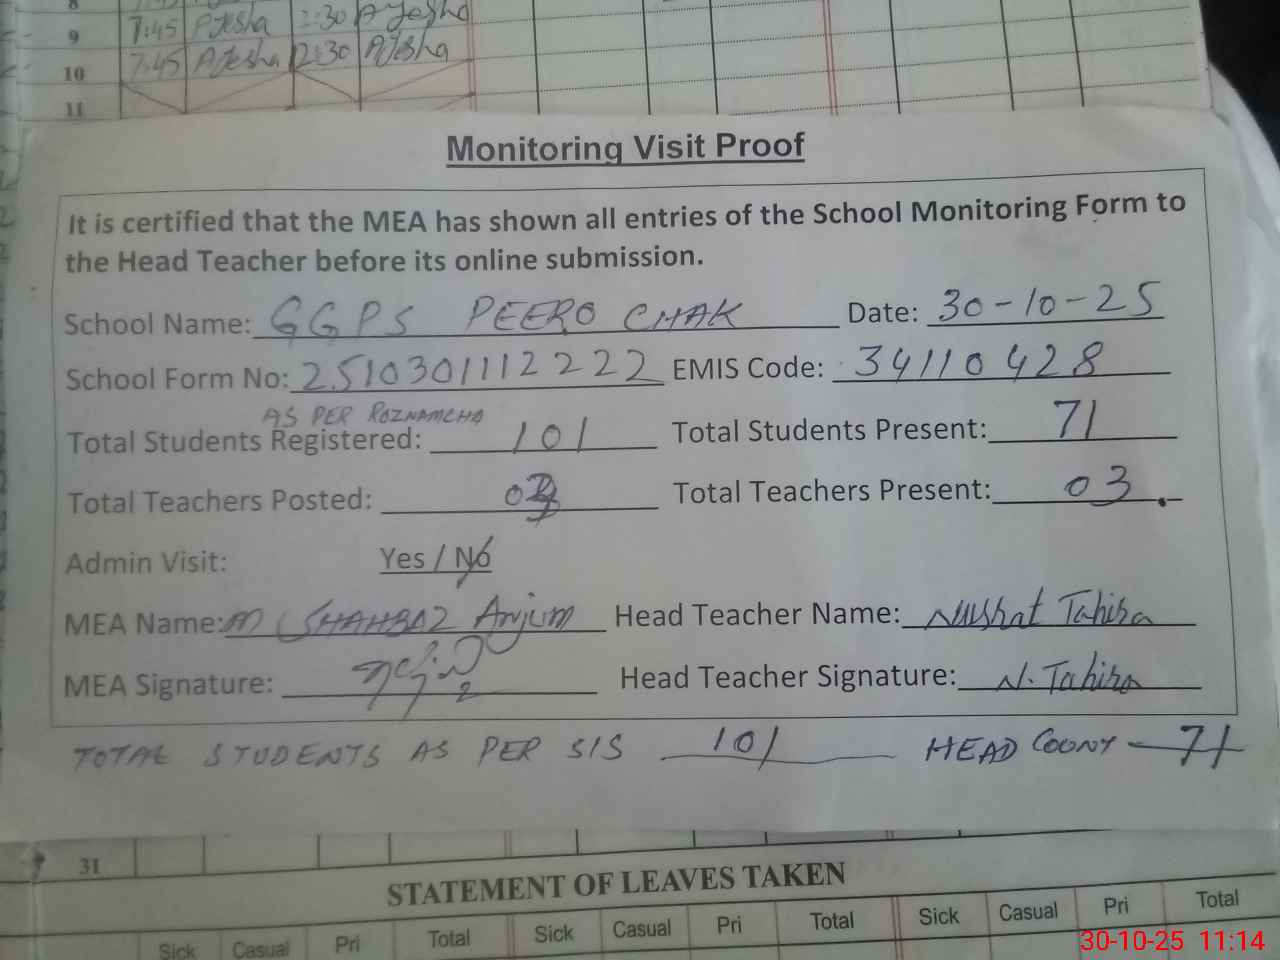 8
9 7:45 AJesha 2:30 AJesha
10 7:45 AJesha 2:30 AJesha
11
Monitoring Visit Proof
It is certified that the MEA has shown all entries of the School Monitoring Form to
the Head Teacher before its online submission.
School Name: GGPS PEERO CHAK Date: 30-10-25
School Form No: 2510301112222 EMIS Code: 34110428
AS PER ROZNAMCHA
Total Students Registered: 101 Total Students Present: 71
Total Teachers Posted: Total Teachers Present: 03
Admin Visit: Yes / No
MEA Name: M SHAHBAZ Anjum Head Teacher Name: Nushat Tahira
MEA Signature: Head Teacher Signature: N. Tahira
TOTAL STUDENTS AS PER SIS 101 HEAD COUNT - 71
31
STATEMENT OF LEAVES TAKEN
Sick Casual Pri Total Sick Casual Pri Total Sick Casual Pri Total
30-10-25 11:14